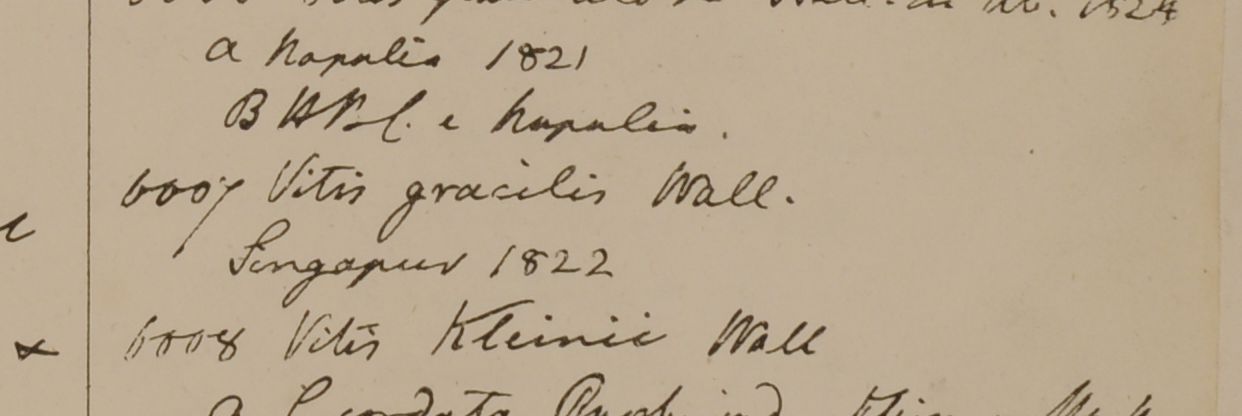 Wall. 1824
a Napalia 1821
B HBC. e Napalia.
6007 Vitis gracilis Wall.
Singapur 1822
6008 Vitis Kleinii Wall
x
a cordata